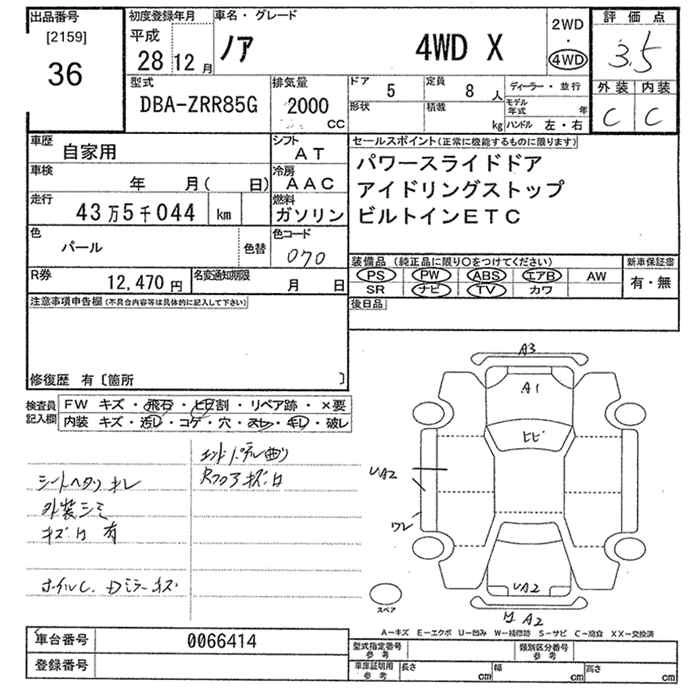 出品番号
[2159]
36
初度登録年月
平成
28 12 月
車名・グレード
ノア 4WD X
2WD
・
4WD
評価点
3.5
外装 内装
C C
型式
DBA-ZRR85G
排気量
2000
CC
ドア 5
定員 8 人
ディーラー・並行
形状
積載 kg
モデル年式 年
ハンドル 左・右
車歴 自家用
シフト AT
車検 年 月( 日)
冷房 AAC
走行 43万5千044 km
燃料 ガソリン
色 パール 色替
色コード 070
R券 12,470 円
名変通知期限 月 日
セールスポイント(正常に機能するものに限ります)
パワースライドドア
アイドリングストップ
ビルトインETC
装備品 (純正品に限り○をつけてください)
PS PW ABS エアB AW
SR ナビ TV カワ
新車保証書
有・無
後日品
注意事項申告欄(不具合内容等は具体的に記入して下さい)
修復歴 有〔箇所 〕
検査員記入欄
FW キズ・飛石・ヒビ割・リペア跡・×要
内装 キズ・汚レ・コゲ・穴・スレ・キレ・破レ
エンドパネル曲り
Rフロアキズサ
シートヘタリ キレ
外装シミ
キズサ 有
ホイルC. Dミラーキズ
A3
A1
ヒビ
UA2
ワレ
UA2
サA2
スペア
A-キズ E-エクボ U-凹み W-補修跡 S-サビ C-腐食 XX-交換済
車台番号 0066414
登録番号
型式指定番号
参考
類別区分番号
参考
車庫証明用
参考
長さ cm
幅 cm
高さ cm